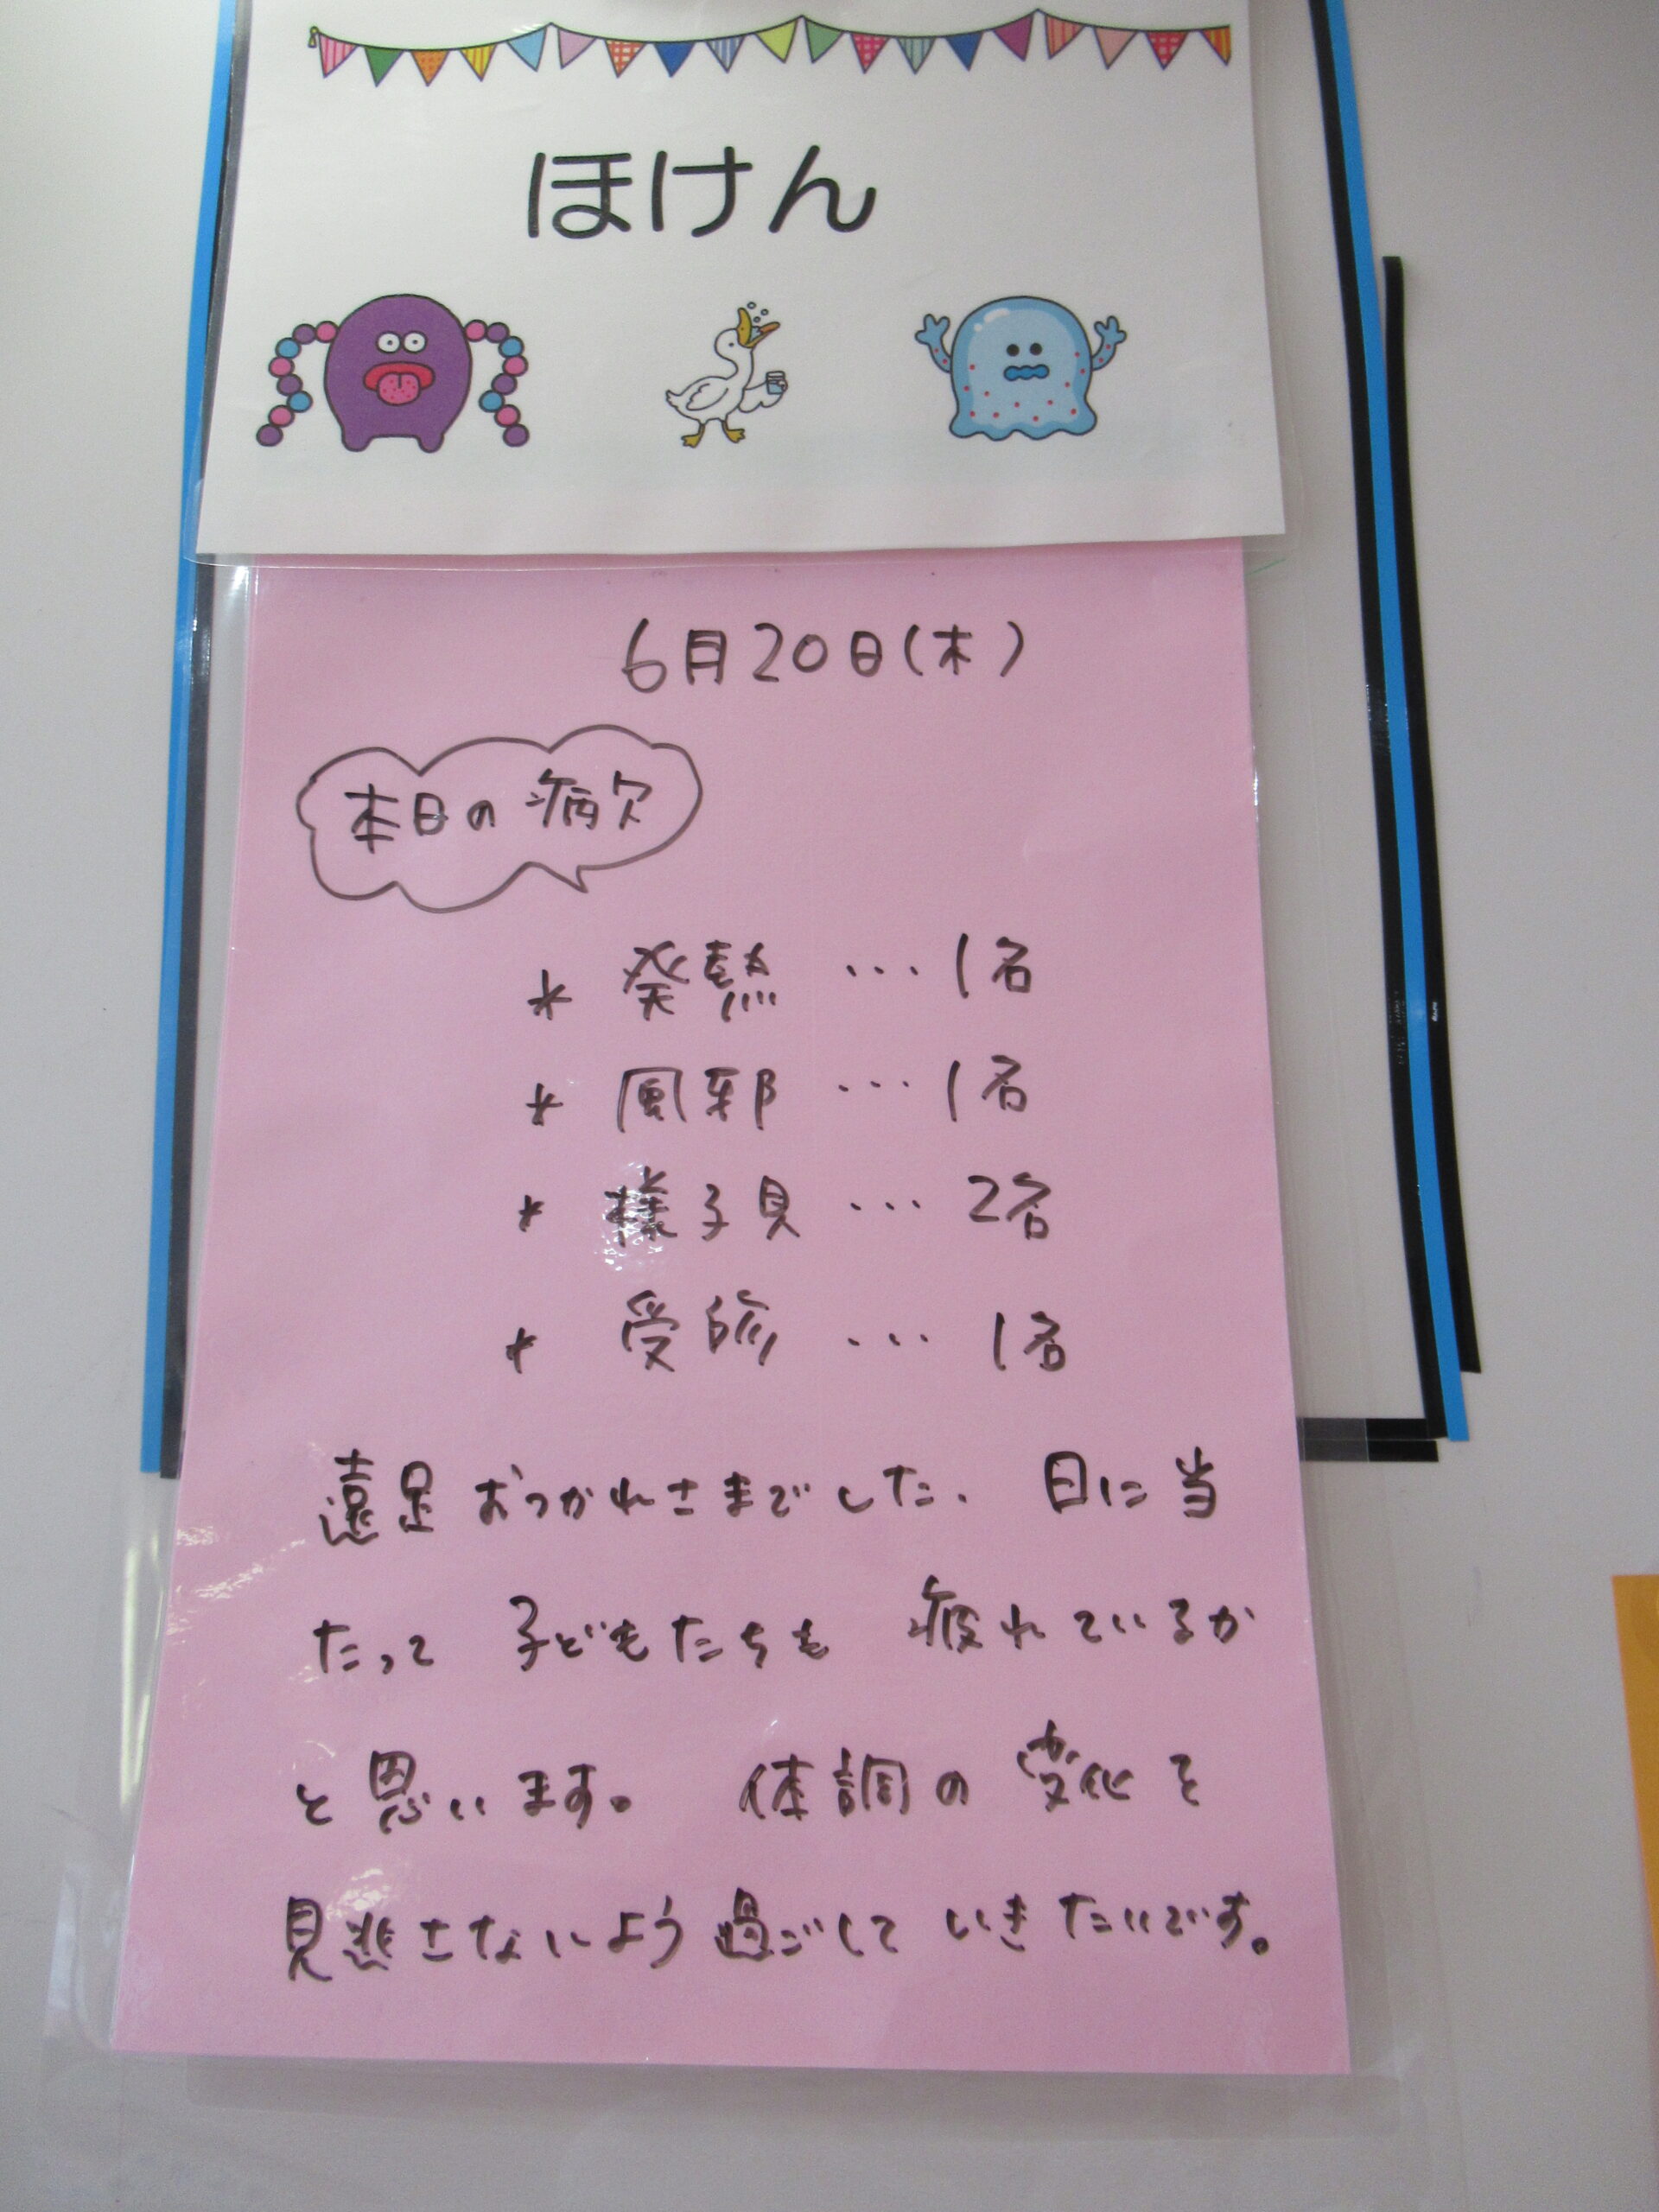 ほけん
6月20日(木)
本日の病欠
* 発熱 … 1名
* 風邪 … 1名
* 様子見 … 2名
* 受診 … 1名
遠足おつかれさまでした。 日に当
たって 子どもたちも 疲れているか
と思います。 体調の変化を
見逃さないよう過ごしていきたいです。